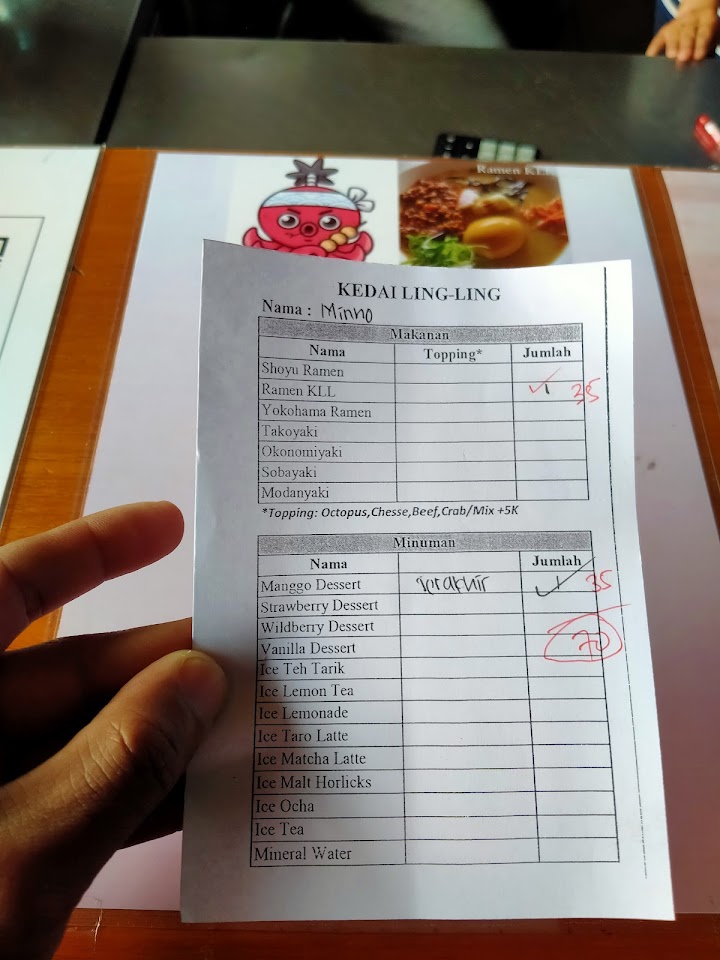 Ramen KLL
KEDAI LING-LING
Nama : Minho
Makanan
Nama Topping* Jumlah
Shoyu Ramen
Ramen KLL 1 35
Yokohama Ramen
Takoyaki
Okonomiyaki
Sobayaki
Modanyaki
*Topping: Octopus,Chesse,Beef,Crab/Mix +5K
Minuman
Nama Jumlah
Manggo Dessert terakhir 1 35
Strawberry Dessert
Wildberry Dessert
70
Vanilla Dessert
Ice Teh Tarik
Ice Lemon Tea
Ice Lemonade
Ice Taro Latte
Ice Matcha Latte
Ice Malt Horlicks
Ice Ocha
Ice Tea
Mineral Water